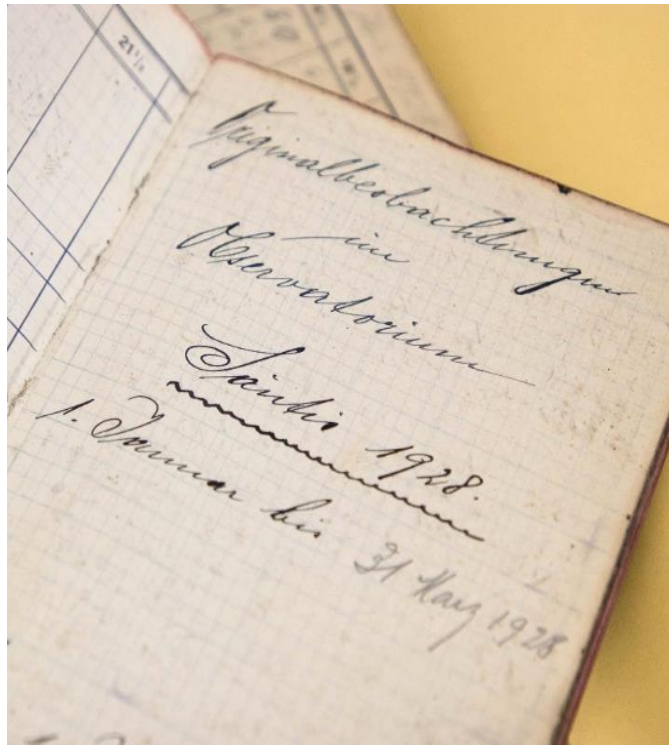 21½
Originalbeobachtungen
im
Observatorium
Säntis 1928.
1. Januar bis 31 März 1928